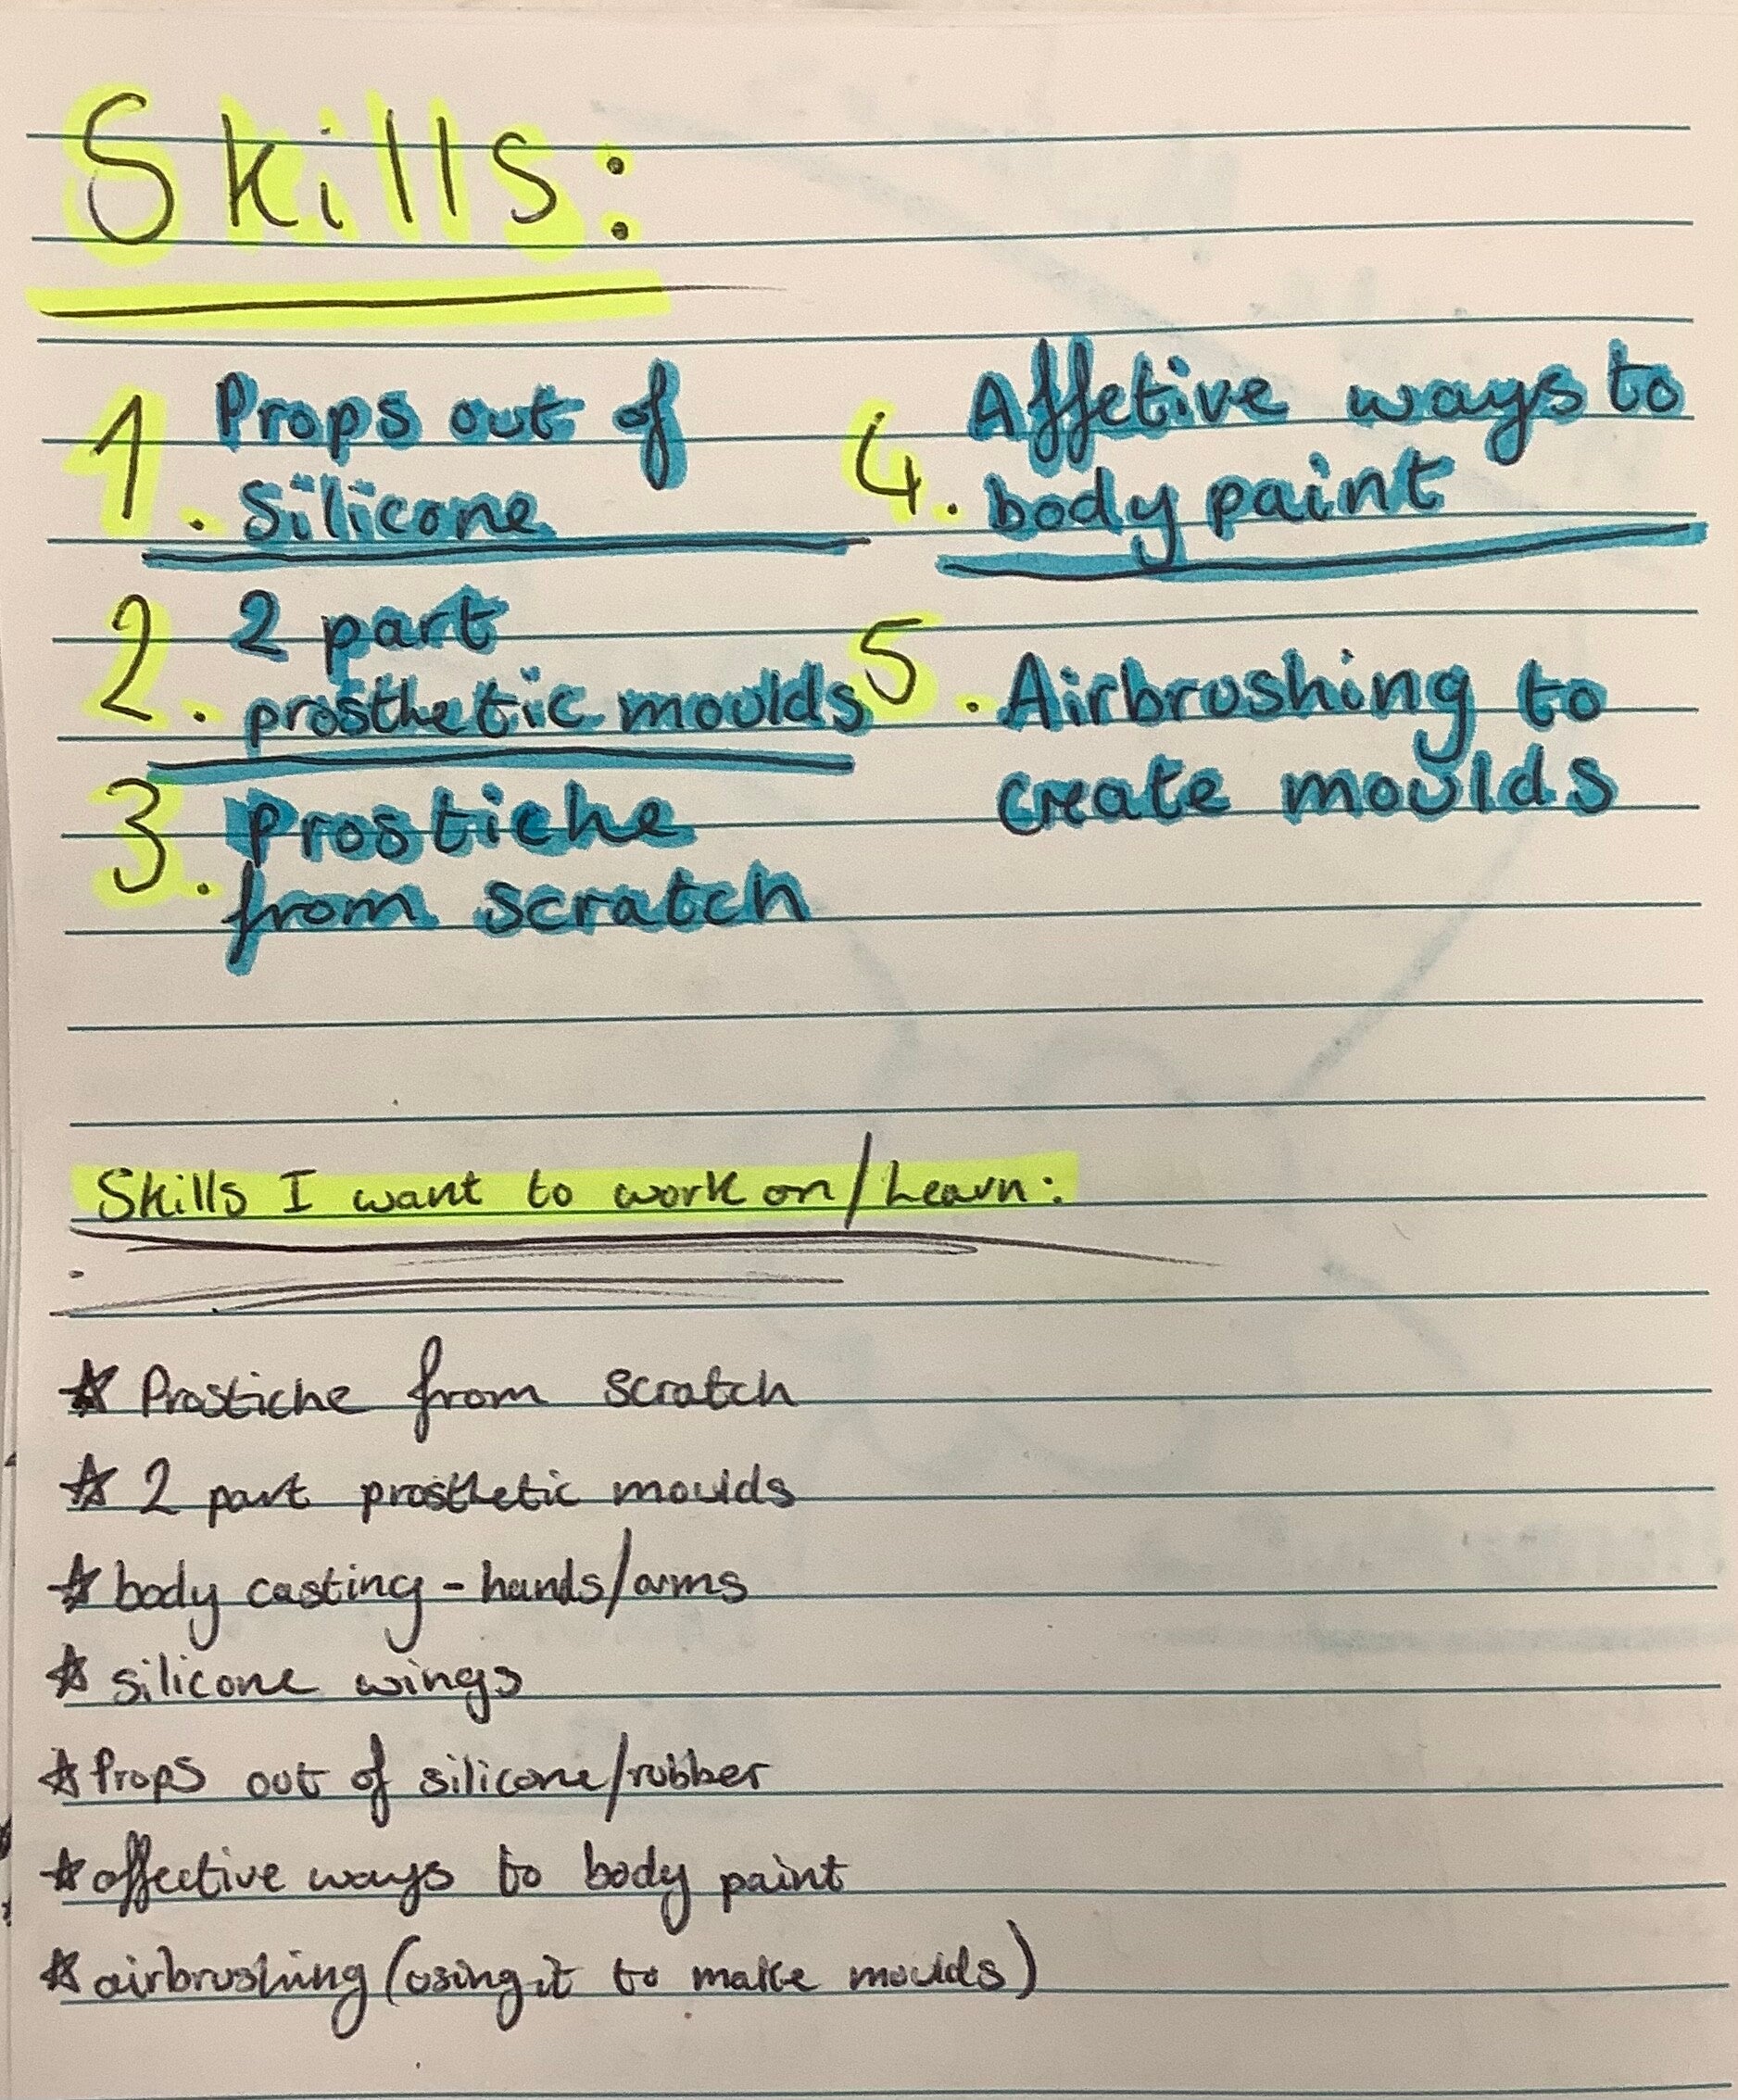 Skills:
1. Props out of
silicone
2. 2 part
prosthetic moulds
3. Prostiche
from scratch
4. Affetive ways to
body paint
5. Airbrushing to
create moulds
Skills I want to work on/Learn:
☆ Prostiche from scratch
☆ 2 part prosthetic moulds
☆ body casting - hands/arms
☆ silicone wings
☆ Props out of silicone/rubber
☆ affective ways to body paint
☆ airbrushing (using it to make moulds)